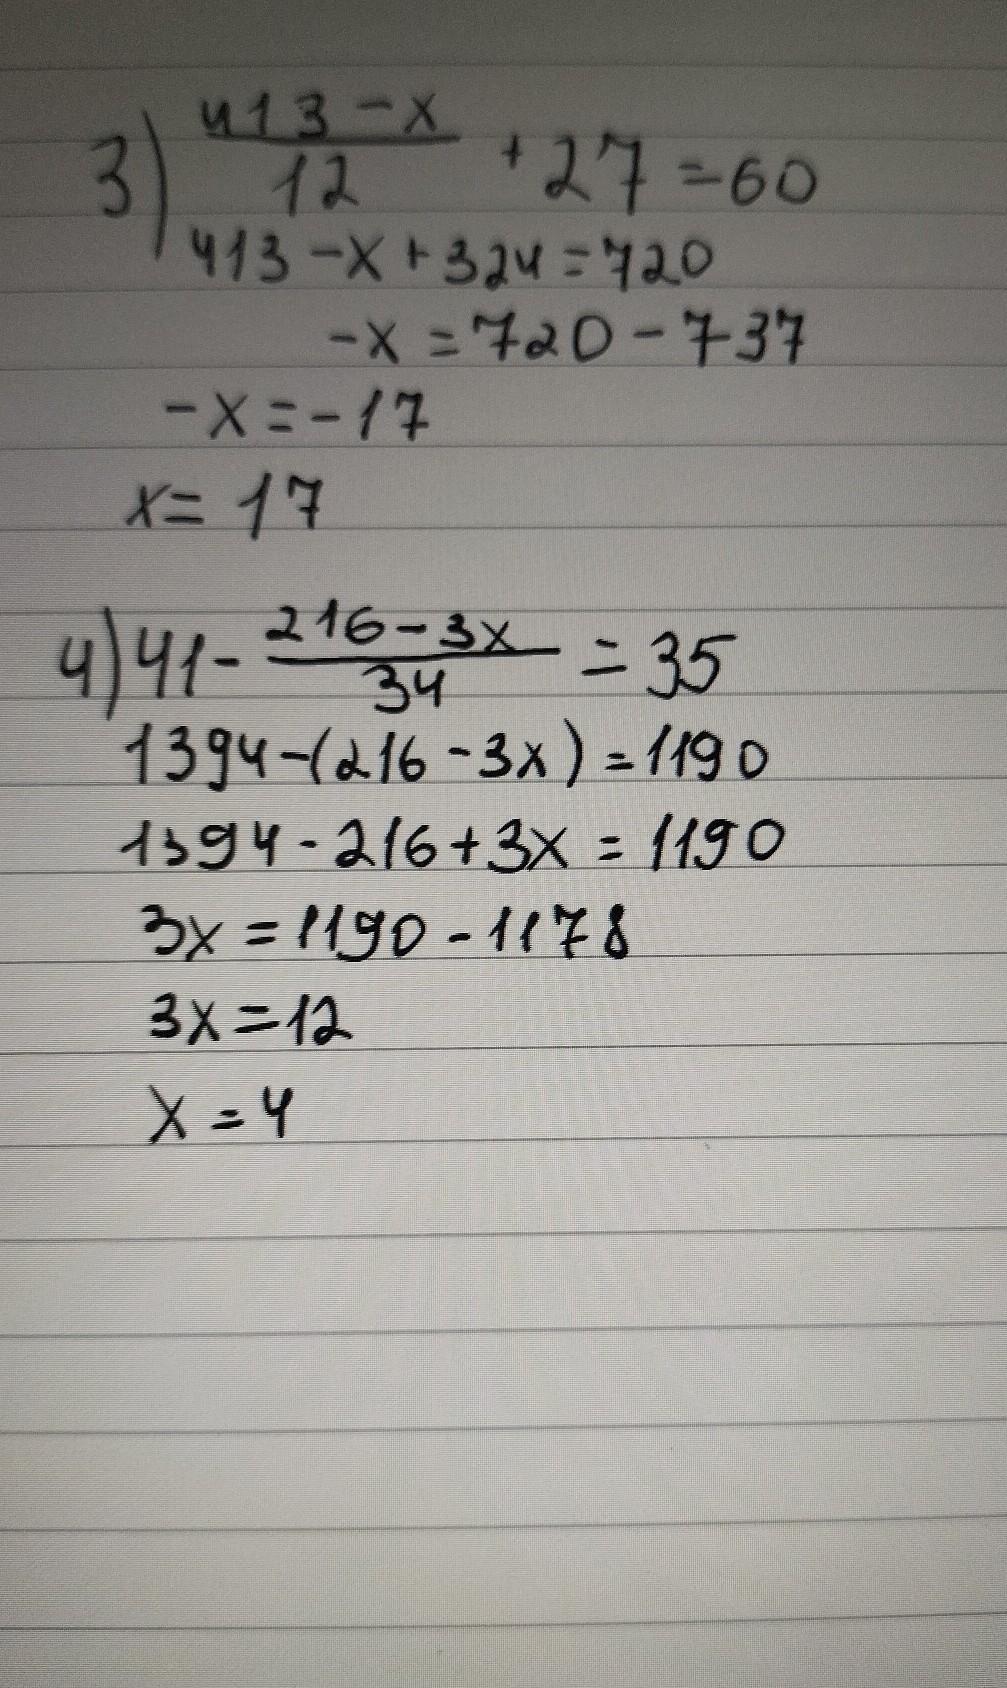 3) (413-x)/12 + 27 = 60
413 - x + 324 = 720
-x = 720 - 737
-x = -17
x = 17
4) 41 - (216-3x)/34 = 35
1394 - (216 - 3x) = 1190
1394 - 216 + 3x = 1190
3x = 1190 - 1178
3x = 12
x = 4